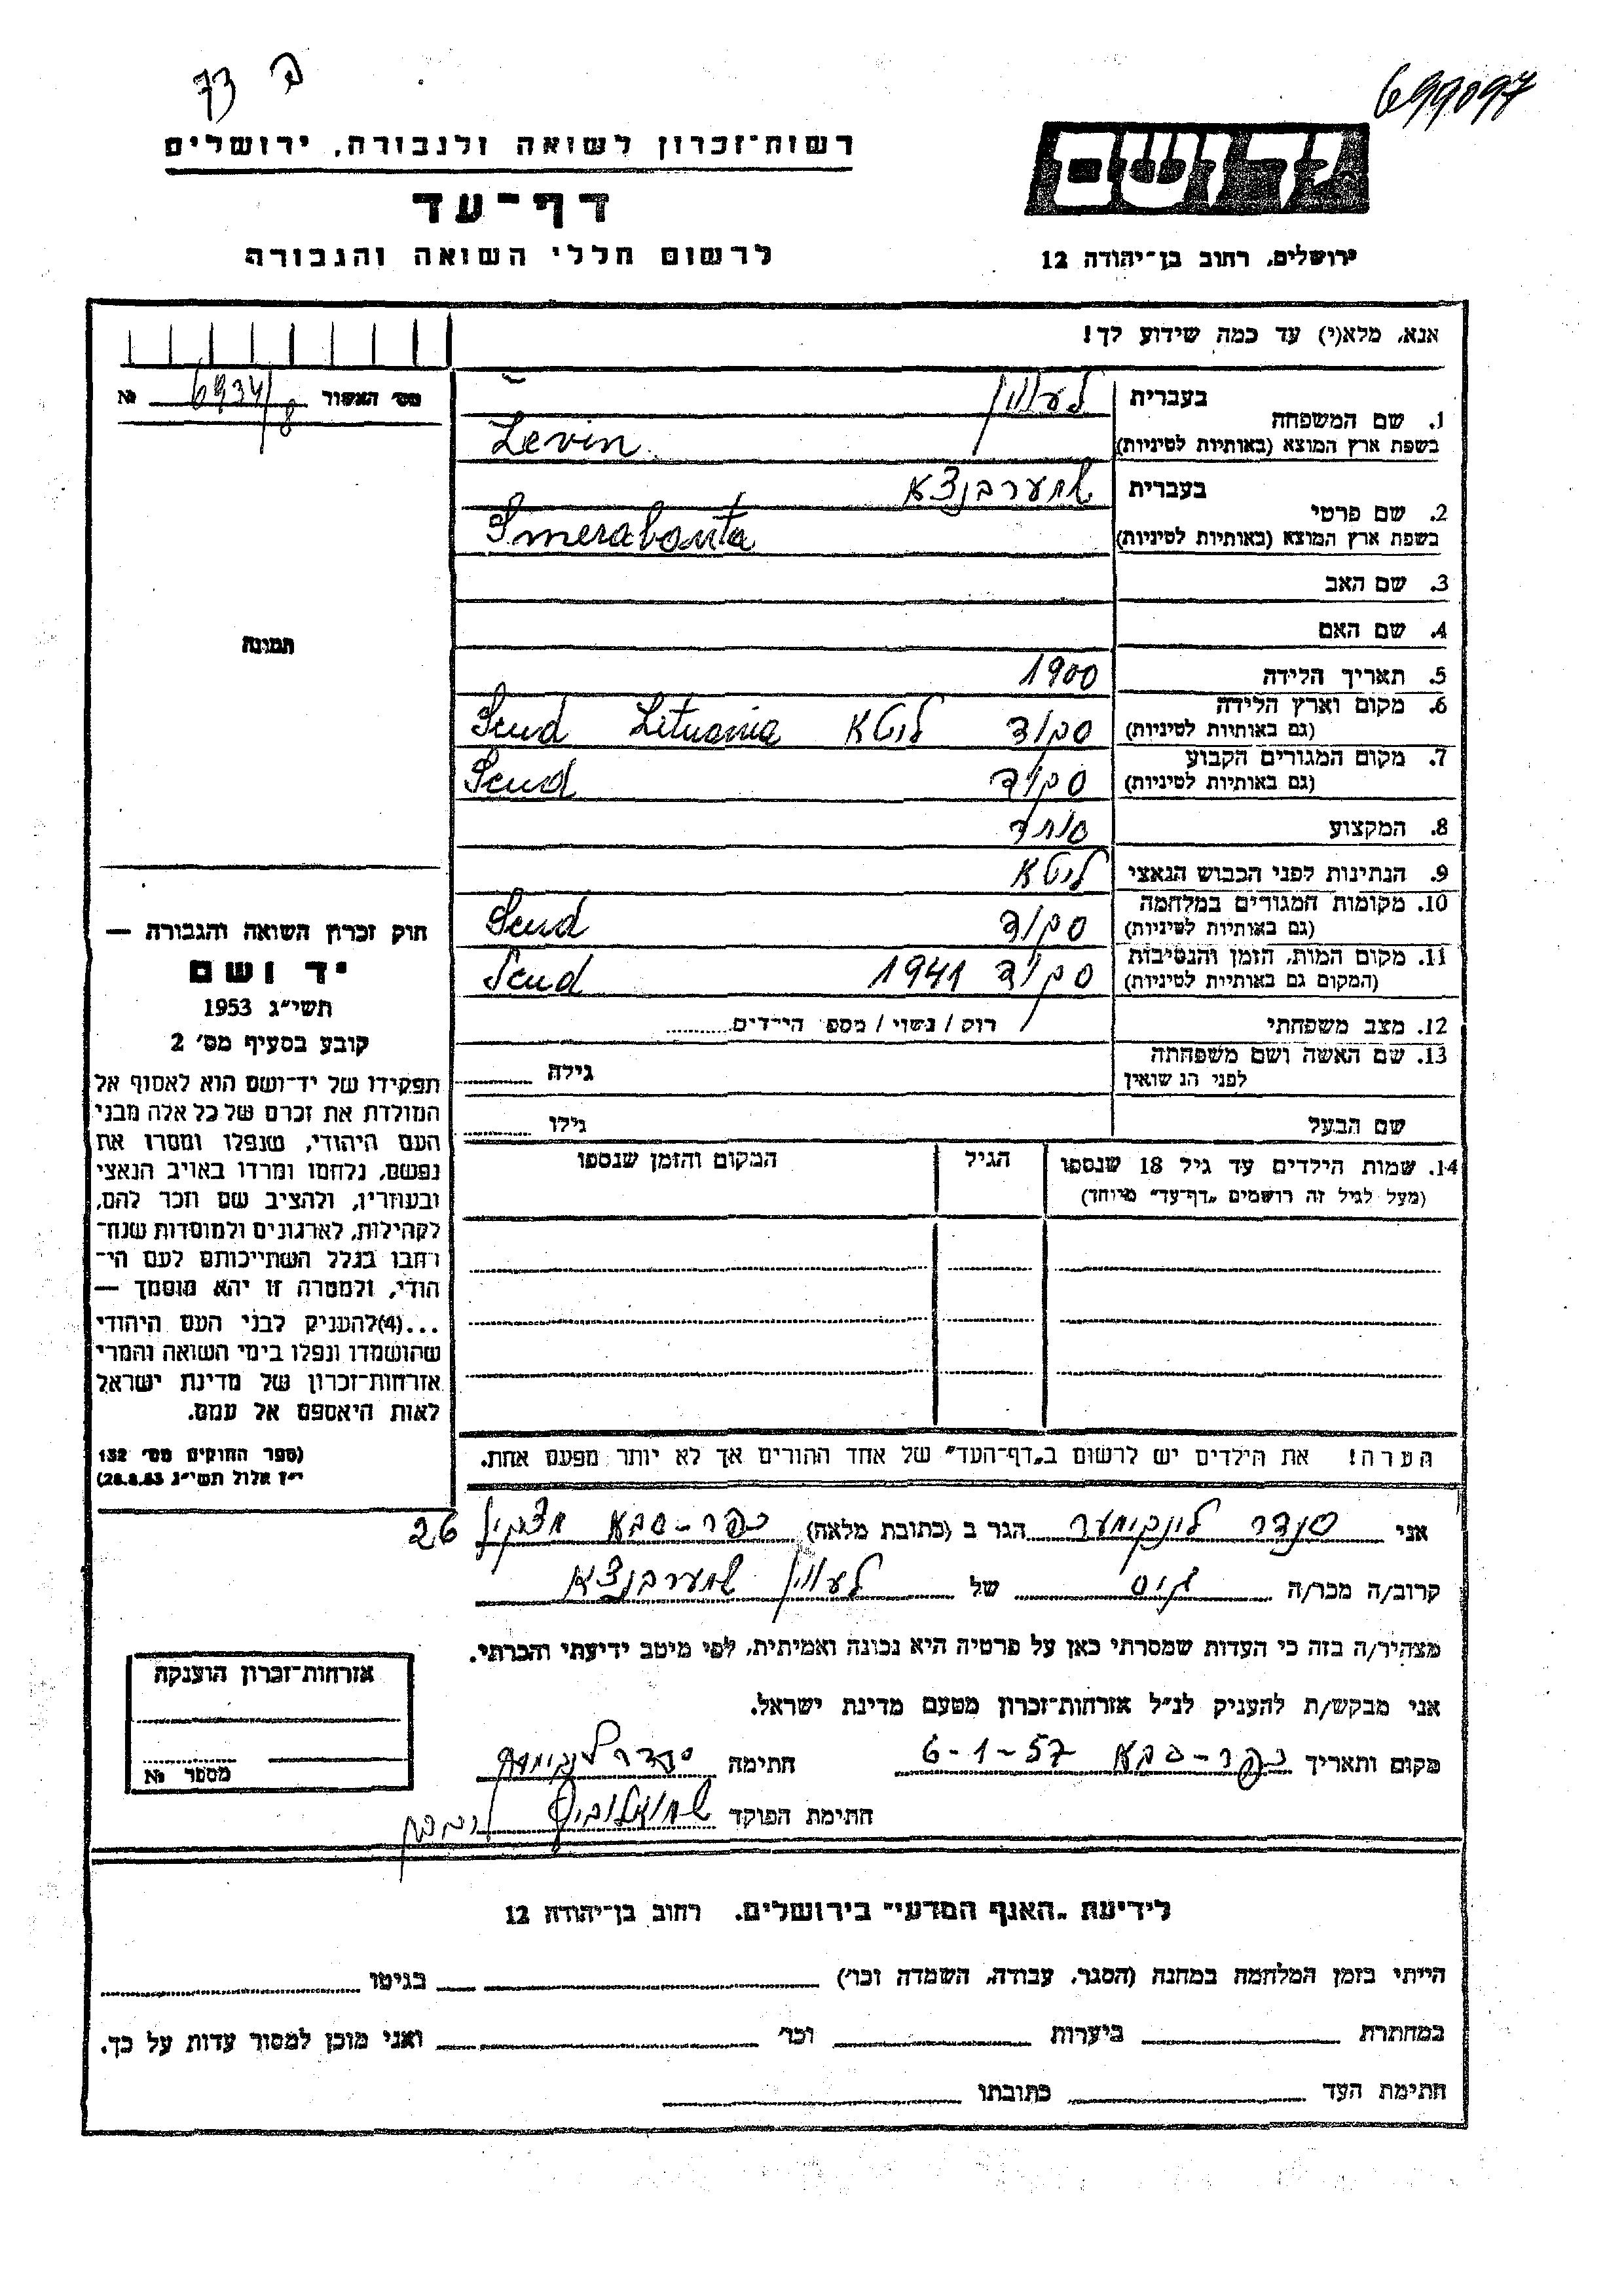 ב 73
699097
רשות־זכרון לשואה ולגבורה, ירושלים
דף־עד
לרשום חללי השואה והגבורה
יד ושם
ירושלים, רחוב בן־יהודה 12
אנא, מלא(י) עד כמה שידוע לך!
מס׳ האשור 6934/8 №
1. שם המשפחה בעברית לעווין
בשפת ארץ המוצא (באותיות לטיניות) Levin
2. שם פרטי בעברית שמערבנצא
בשפת ארץ המוצא (באותיות לטיניות) Smerabonta
3. שם האב
4. שם האם
תמונה
5. תאריך הלידה 1900
6. מקום וארץ הלידה (גם באותיות לטיניות) סקוד ליטא Lituania Scud
7. מקום המגורים הקבוע (גם באותיות לטיניות) סקוד Scud
8. המקצוע סוחר
9. הנתינות לפני הכבוש הנאצי ליטא
10. מקומות המגורים במלחמה (גם באותיות לטיניות) סקוד Scud
11. מקום המות, הזמן והנסיבות (המקום גם באותיות לטיניות) סקוד 1941 Scud
12. מצב משפחתי רוק / נשוי / מספ׳ הילדים
13. שם האשה ושם משפחתה לפני הנישואין גילה
שם הבעל גילו
14. שמות הילדים עד גיל 18 שנספו הגיל המקום והזמן שנספו
(מעל לגיל זה רושמים „דף־עד” מיוחד)
הערה! את הילדים יש לרשום ב„דף־העד” של אחד ההורים אך לא יותר מפעם אחת.
חוק זכרון השואה והגבורה —
יד ושם
תשי״ג 1953
קובע בסעיף מס׳ 2
תפקידו של יד־ושם הוא לאסוף אל
המולדת את זכרם של כל אלה מבני
העם היהודי, שנפלו ומסרו את
נפשם, נלחמו ומרדו באויב הנאצי
ובעוזריו, ולהציב שם וזכר להם,
לקהילות, לארגונים ולמוסדות שנח־
רבו בגלל השתייכותם לעם הי־
הודי, ולמטרה זו יהא מוסמך —
...(4)להעניק לבני העם היהודי
שהושמדו ונפלו בימי השואה והמרי
אזרחות־זכרון של מדינת ישראל
לאות היאספם אל עמם.
(ספר החוקים מס׳ 132
י״ז אלול תשי״ג 28.8.53)
אני סנדר הגר ב (כתובת מלאה) כפר-סבא 26
קרוב/ה מכר/ה גיס של לעווין שמערבנצא
מצהיר/ה בזה כי העדות שמסרתי כאן על פרטיה היא נכונה ואמיתית, לפי מיטב ידיעתי והכרתי.
אני מבקש/ת להעניק לנ״ל אזרחות־זכרון מטעם מדינת ישראל.
מקום ותאריך כפר-סבא 6-1-57 חתימה סנדר
חתימת הפוקד
אזרחות־זכרון הוענקה
מספר №
לידיעת „האגף המדעי” בירושלים. רחוב בן־יהודה 12
הייתי בזמן המלחמה במחנה (הסגר, עבודה, השמדה וכו׳) בגיטו
במחתרת ביערות וכו׳ ואני מוכן למסור עדות על כך.
חתימת העד כתובתו